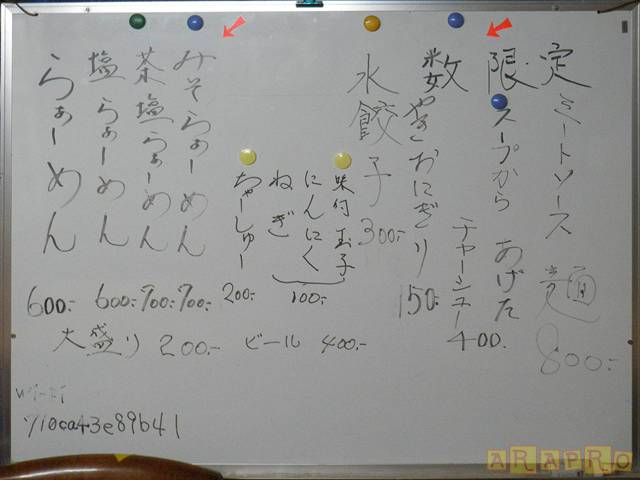 数限定
ミートソース麺 800.-
スープからあげた
チャーシュー 400.
やきおにぎり 150.-
水餃子 300.-
味付玉子
にんにく
ねぎ
100.-
ちゃーしゅー 200.-
みそらぁーめん 700.-
茶塩らぁーめん 700.-
塩らぁーめん 600.-
らぁーめん 600.-
大盛り 200.- ビール 400.-
Wi-Fi
710ca43e89b41
ARAPRO